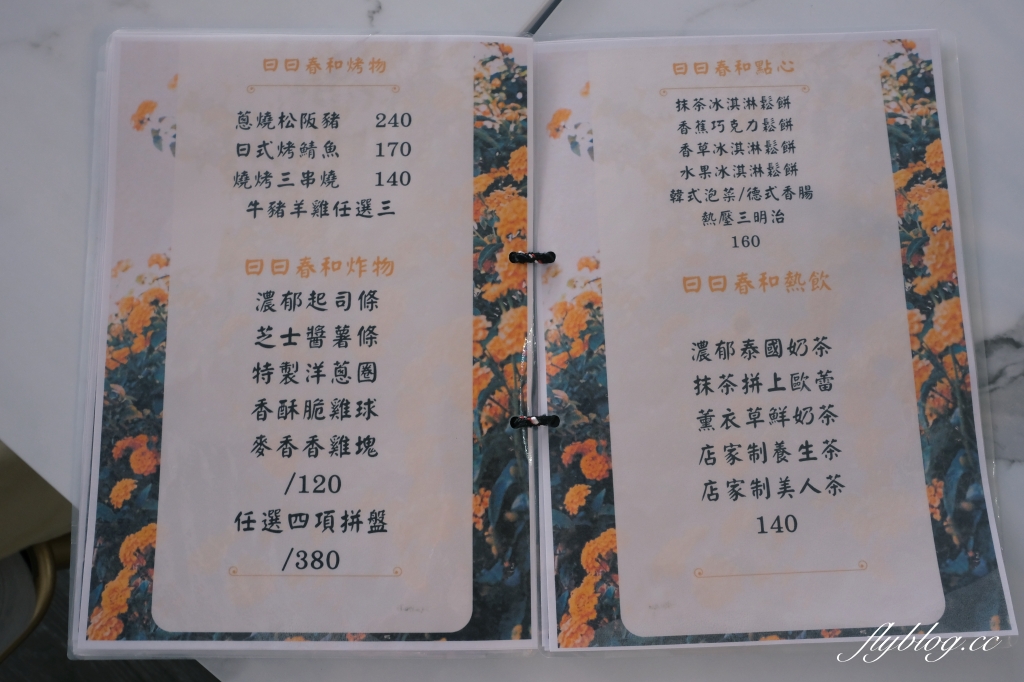 日日春和烤物
蔥燒松阪豬 240
日式烤鯖魚 170
燒烤三串燒 140
牛豬羊雞任選三
日日春和炸物
濃郁起司條
芝士醬薯條
特製洋蔥圈
香酥脆雞球
麥香香雞塊
/120
任選四項拼盤
/380
日日春和點心
抹茶冰淇淋鬆餅
香蕉巧克力鬆餅
香草冰淇淋鬆餅
水果冰淇淋鬆餅
韓式泡菜/德式香腸
熱壓三明治
160
日日春和熱飲
濃郁泰國奶茶
抹茶拼上歐蕾
薰衣草鮮奶茶
店家制養生茶
店家制美人茶
140
flyblog.cc